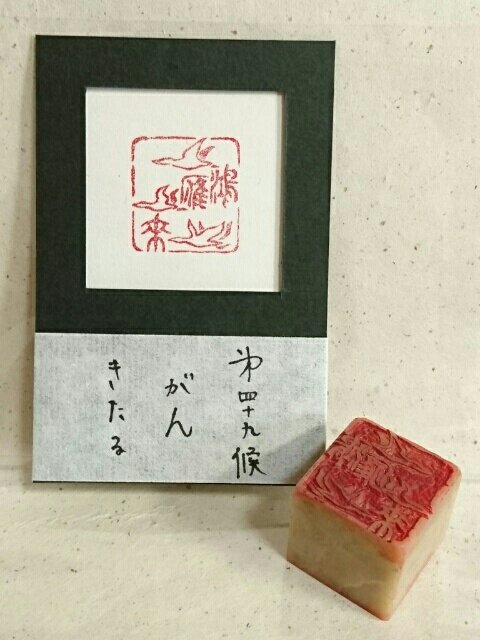 鴻
雁
来
第四十九候
がん
きたる